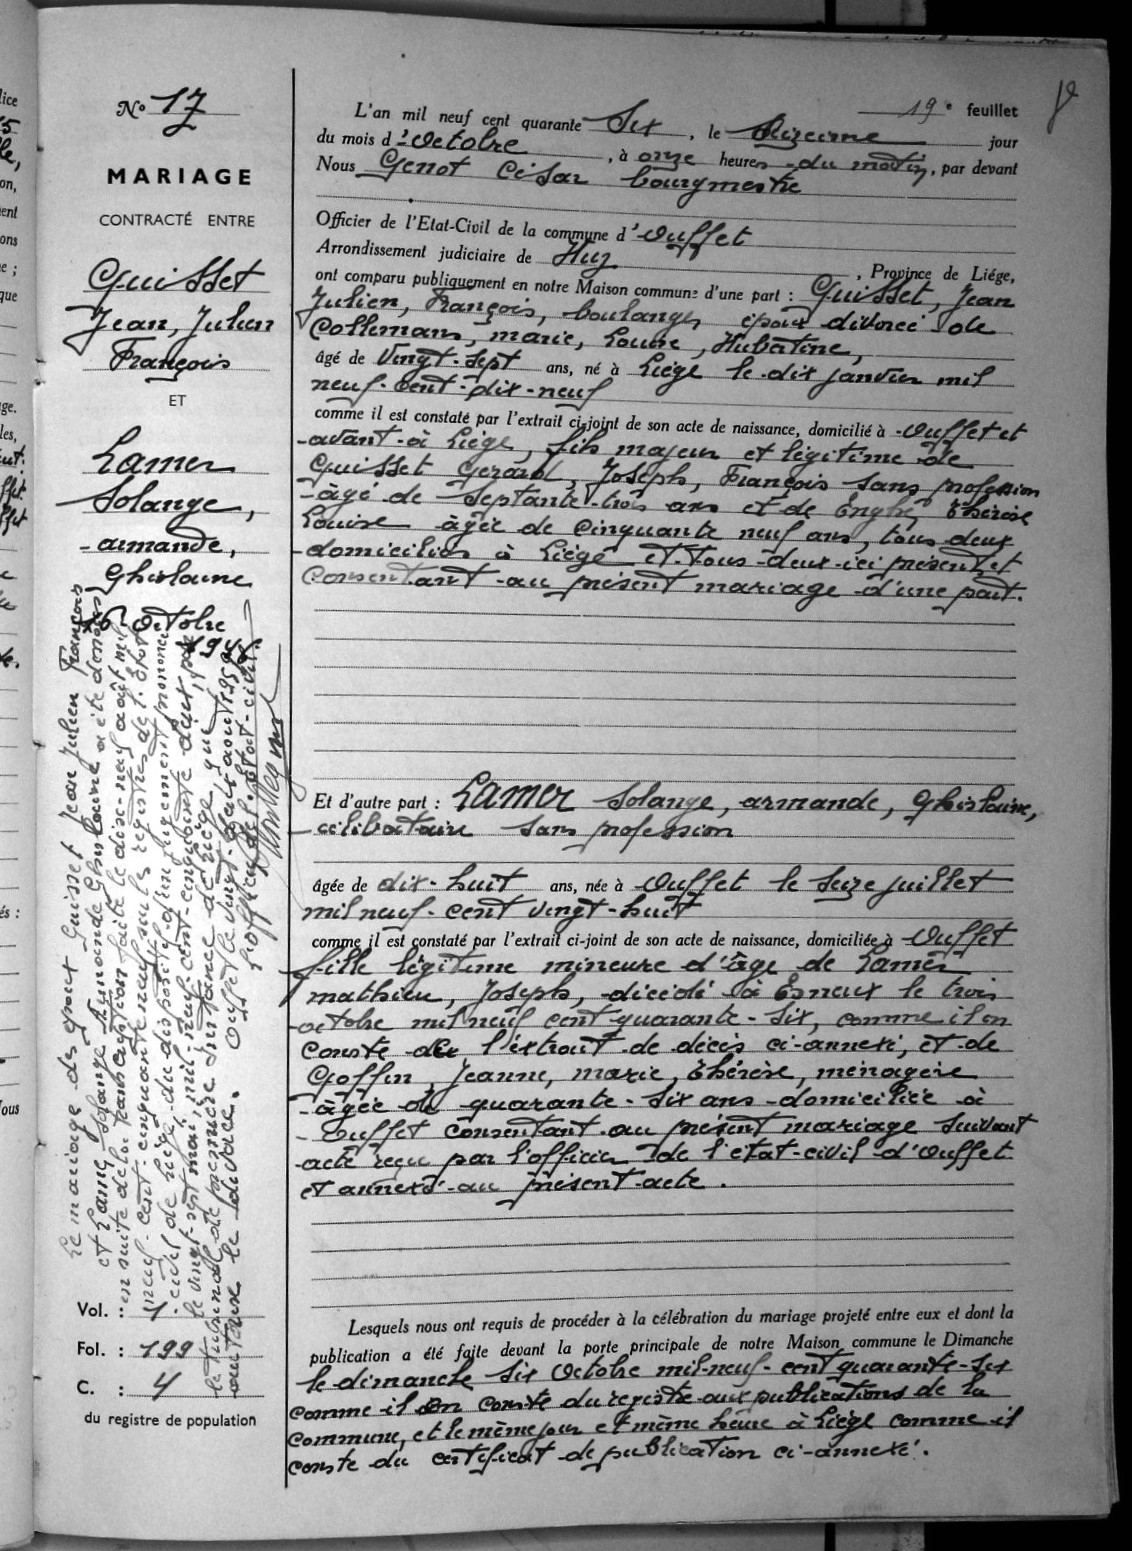 19e feuillet
No 17
MARIAGE
CONTRACTÉ ENTRE
Guisset
Jean, Julien
François
ET
Lamer
Solange,
armande,
Ghislaine
16 octobre
1946
Le mariage des époux Guisset Jean Julien François
et Lamer Solange Armande Ghislaine a été
en suite de la transcription faite le dix-neuf août mil
neuf cent cinquante neuf sur les registres de l'Etat
civil de Liège du dispositif d'un jugement prononcé
le vingt-sept mai, mil neuf cent cinquante par
le tribunal de première instance de Liège que
autorise le divorce. Ouffet le vingt août 1959
L'officier de l'état-civil
Vol. : 1
Fol. : 199
C. : 4
du registre de population
L'an mil neuf cent quarante six, le seizième jour
du mois d'octobre, à onze heures du matin, par devant
Nous Genot César bourgmestre
Officier de l'Etat-Civil de la commune d'Ouffet
Arrondissement judiciaire de Huy, Province de Liége,
ont comparu publiquement en notre Maison commune d'une part : Guisset, Jean
Julien, François, boulanger, époux divorcé de
Collemans, marie, Louise, Hubertine,
âgé de vingt-sept ans, né à Liège le dix janvier mil
neuf-cent-dix-neuf
comme il est constaté par l'extrait ci-joint de son acte de naissance, domicilié à Ouffet et
avant à Liège, fils majeur et légitime de
Guisset Gerard, Joseph, François sans profession
âgé de septante-trois ans et de Englé, thérèse
Louise âgée de cinquante neuf ans, tous deux
domiciliés à Liège et tous deux ici présent et
consentant au présent mariage d'une part.
Et d'autre part : Lamer Solange, armande, Ghislaine,
célibataire sans profession
âgée de dix-huit ans, née à Ouffet le seize juillet
mil neuf-cent vingt-huit
comme il est constaté par l'extrait ci-joint de son acte de naissance, domiciliée à Ouffet
fille légitime mineure d'âge de Lamer
mathieu, Joseph, décédé à Esneux le trois
octobre mil neuf cent quarante-six, comme il en
conste de l'extrait de décès ci-annexé, et de
Goffin, Jeanne, marie, thérèse, ménagère
âgée de quarante-six ans domiciliée à
Ouffet consentant au présent mariage suivant
acte reçu par l'officier de l'état-civil d'Ouffet
et annexé au présent acte.
Lesquels nous ont requis de procéder à la célébration du mariage projeté entre eux et dont la
publication a été faite devant la porte principale de notre Maison commune le Dimanche
le dimanche six octobre mil-neuf-cent quarante-six
comme il en conste du registre aux publications de la
commune, et le même jour et même heure à Liège comme il
conste du certificat de publication ci-annexé.